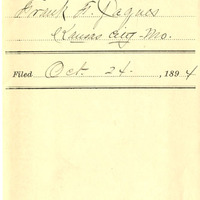 Frank F. Jaques
Kansas City - Mo.
Filed Oct. 24 , 1894